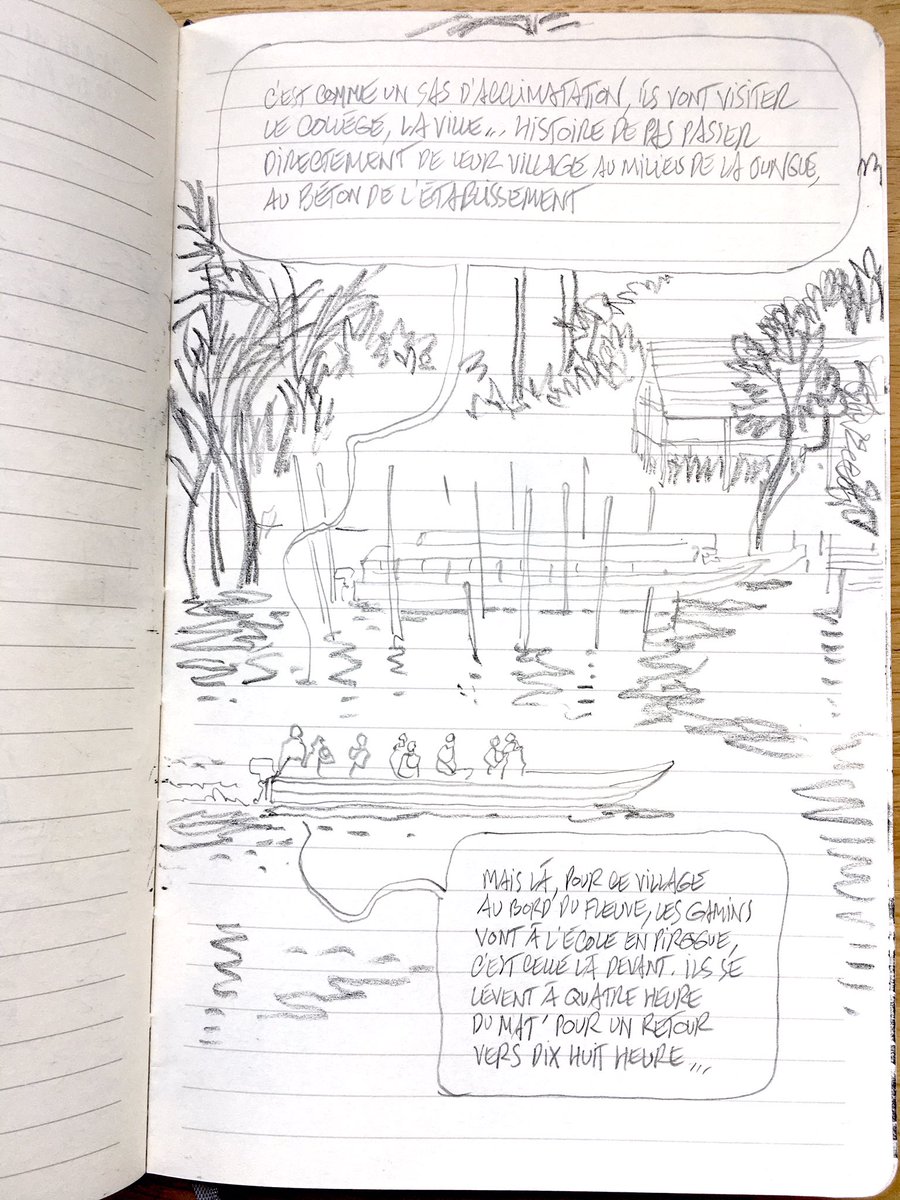 C'EST COMME UN SAS D'ACCLIMATATION, ILS VONT VISITER
LE COLLÉGE, LA VILLE... HISTOIRE DE PAS PASSER
DIRECTEMENT DE LEUR VILLAGE AU MILIEU DE LA JUNGLE,
AU BÉTON DE L'ÉTABLISSEMENT
MAIS LÀ, POUR CE VILLAGE
AU BORD DU FLEUVE, LES GAMINS
VONT À L'ÉCOLE EN PIROGUE,
C'EST CELLE LÀ DEVANT. ILS SE
LÈVENT À QUATRE HEURE
DU MAT' POUR UN RETOUR
VERS DIX HUIT HEURE...